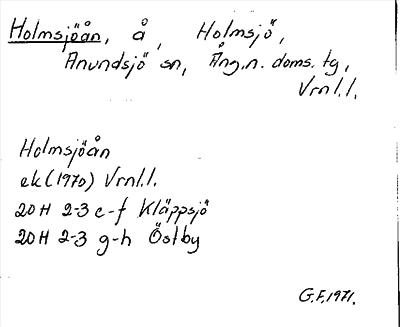 Holmsjöån, å, Holmsjö,
Anundsjö sn, Ång.n. doms. tg,
Vrnl.l.
Holmsjöån
ek (1970) Vrnl.l.
20H 2-3 e-f Kläppsjö
20H 2-3 g-h Östby
G.F.1971.